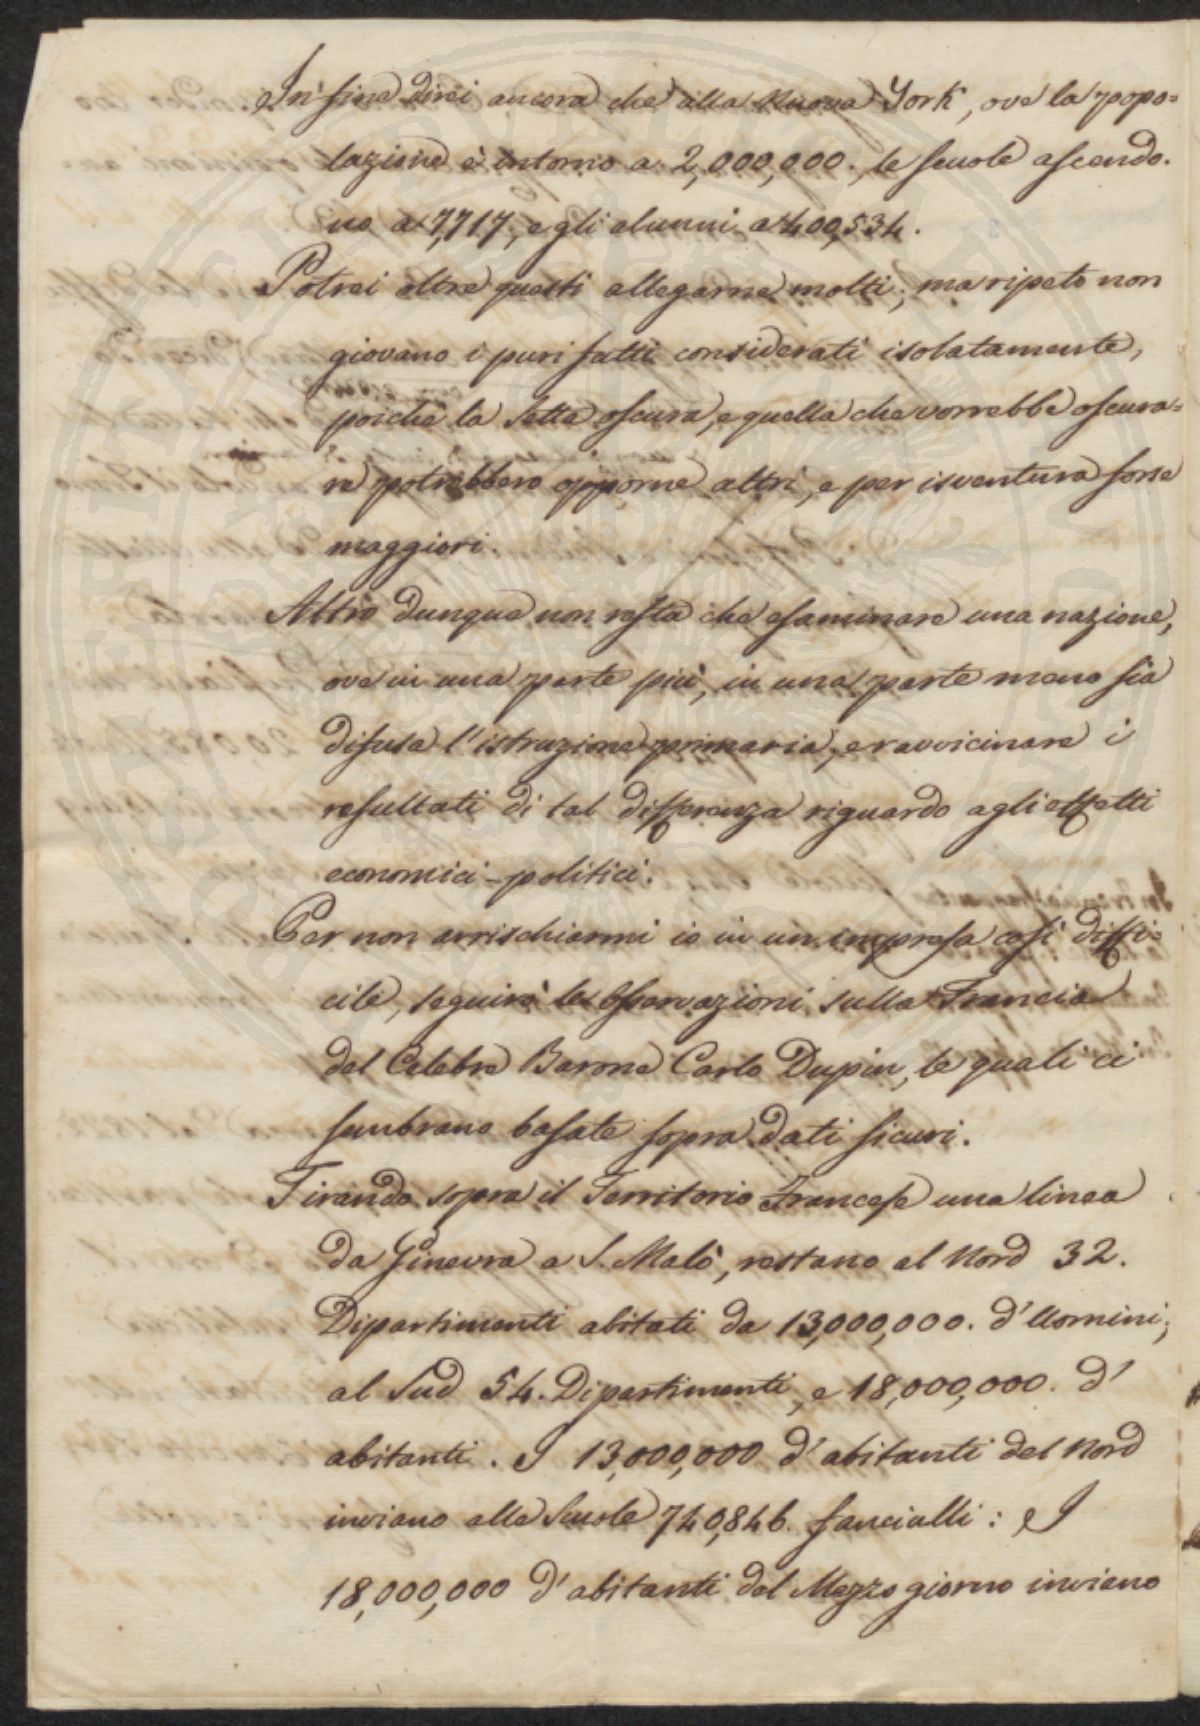 In fine direi ancora che alla Nuova York, ove la popo=
lazione è intorno a 2,000,000., le scuole ascendo.
no a 7,717., e gli alunni a 400,534.
Potrei oltre questi allegarne molti; ma ripeto non
giovano i puri fatti considerati isolatamente,
poiche la Setta oscura, e quella che vorrebbe oscura=
re potrebbero opporne altri, e per isventura forse
maggiori.
Altro dunque non resta che esaminare una nazione,
ove in una parte più, in una parte meno sia
difusa l'istruzione primaria, e ravvicinare i
resultati di tal differenza riguardo agli effetti
economici-politici.
Per non arrischiarmi io in un impresa così diffi=
cile, seguirò le Osservazioni sulla Francia
del Celebre Barone Carlo Dupin, le quali ci
sembrano basate sopra dati sicuri.
Tirando sopra il Territorio Francese una linea
da Ginevra a S. Malò, restano al Nord 32.
Dipartimenti abitati da 13,000,000. d'Uomini;
al Sud 54. Dipartimenti, e 18,000,000. d'
abitanti. I 13,000,000 d'abitanti del Nord
inviano alle Scuole 740,846. fanciulli: e I
18,000,000 d'abitanti del Mezzo giorno inviano